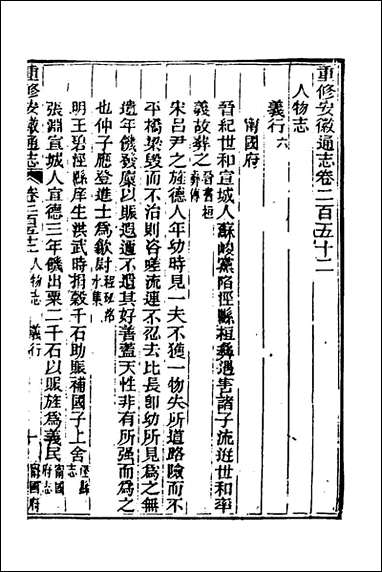 重修安徽通志卷二百五十二
人物志
義行六
甯國府
晉紀世和宣城人蘇峻黨陷涇縣桓彝遇害諸子流迸世和率
義故葬之晉書桓彝傳
宋呂尹之旌德人年幼時見一夫不獲一物失所道路險而不
平橋梁毁而不治則咨嗟流連不忍去比長卽幼所見爲之無
遺年饑發廩以賑遐邇不遺其好善蓋天性非有所强而爲之
也仲子應登進士爲歙尉程珌洺水集
明王碧涇縣庠生洪武時捐穀千石助賑補國子上舍涇縣志
張淵宣城人宣德三年饑出粟二千石以賑旌爲義民甯國府志
重修安徽通志 卷二百五十二 人物志 義行 一 甯國府